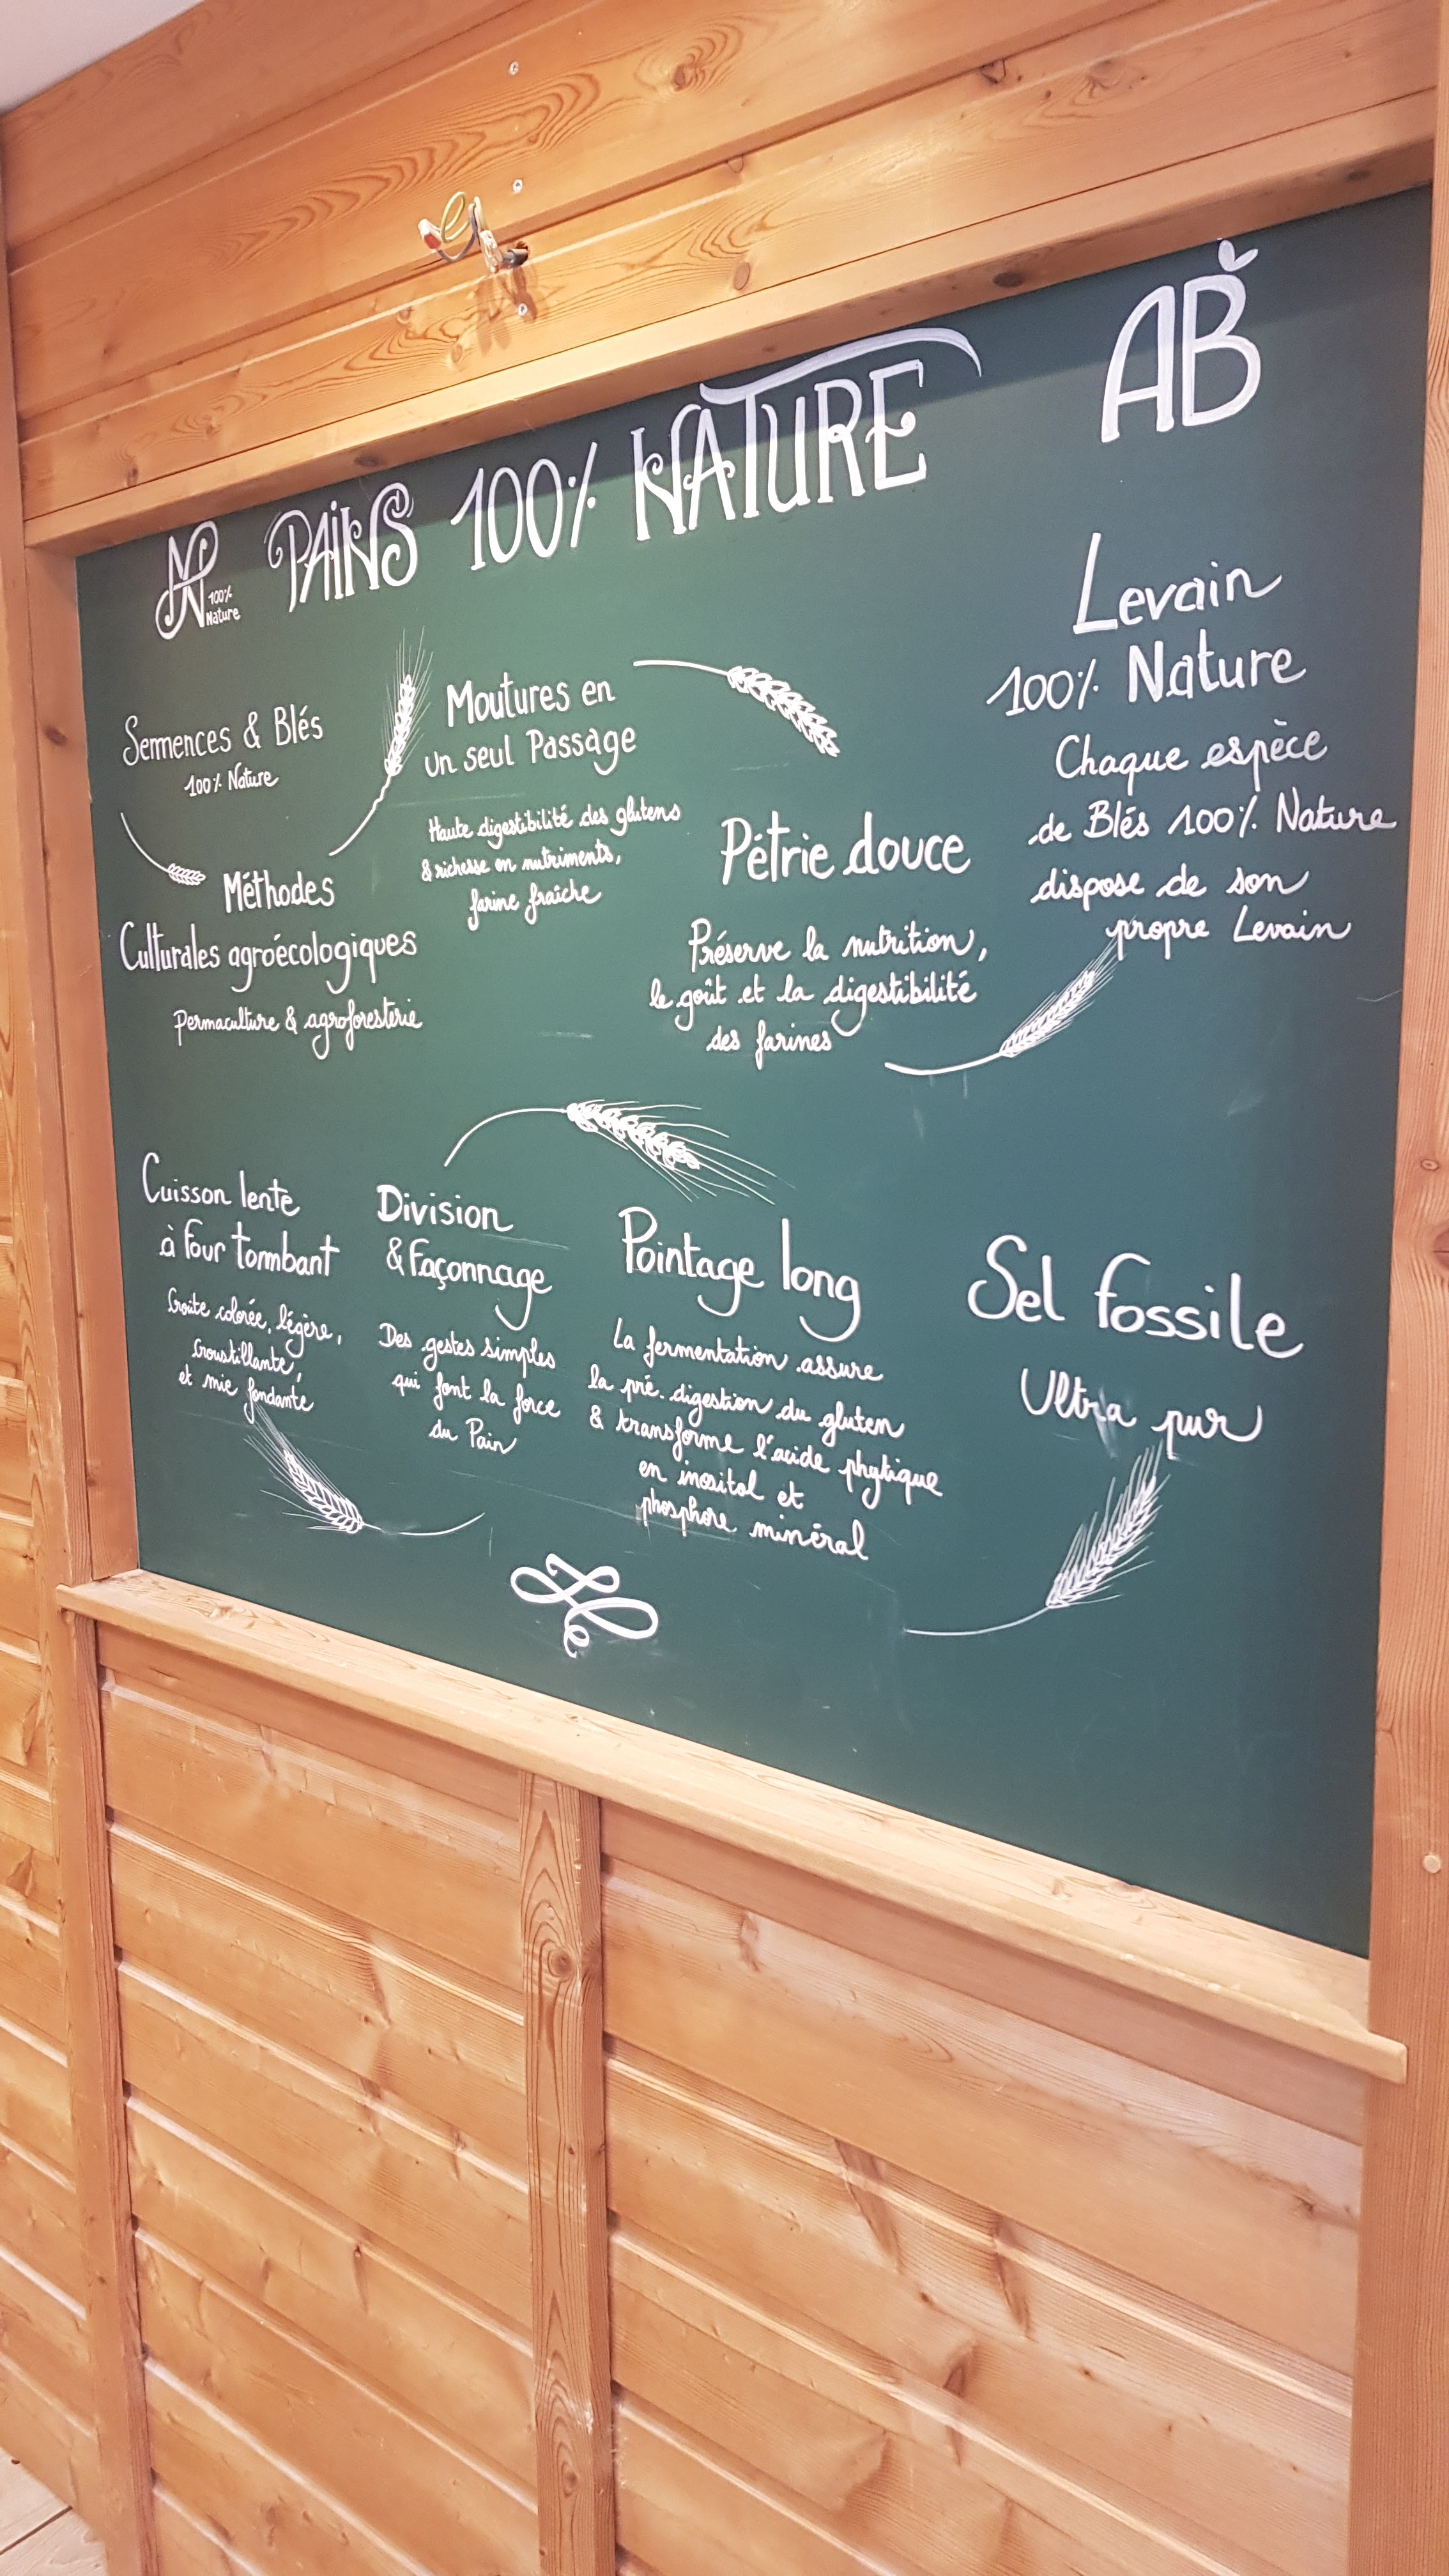 N
100%
Nature
PAINS 100% NATURE
AB
Semences & Blés
100% Nature
Méthodes
Culturales agroécologiques
Permaculture & agroforesterie
Moutures en
un seul Passage
Haute digestibilité des glutens
& richesse en nutriments,
farine fraîche
Pétrie douce
Préserve la nutrition,
le goût et la digestibilité
des farines
Levain
100% Nature
Chaque espèce
de Blés 100% Nature
dispose de son
propre Levain
Cuisson lente
à four tombant
Croûte colorée, légère,
Croustillante,
et mie fondante
Division
& Façonnage
Des gestes simples
qui font la force
du Pain
Pointage long
La fermentation assure
la pré-digestion du gluten
& transforme l'acide phytique
en inositol et
phosphore minéral
Sel fossile
Ultra pur